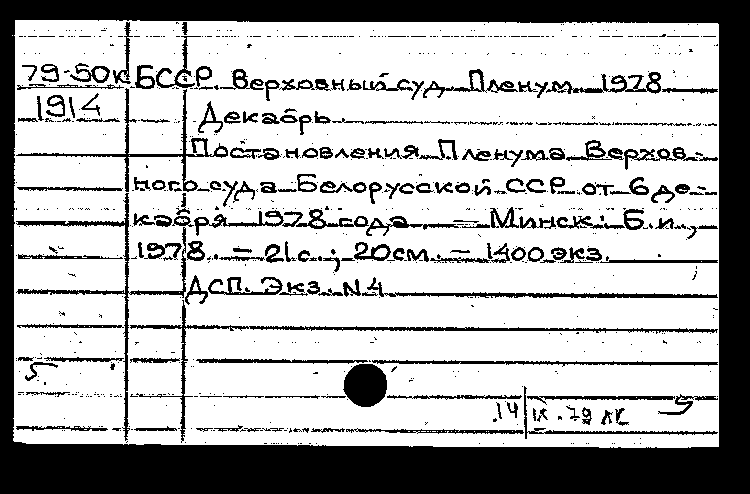 79-50к БССР. Верховный суд. Пленум. 1978
1914 Декабрь.
Постановления Пленума Верхов-
ного суда Белорусской ССР от 6 де-
кабря 1978 года. — Минск: Б.и.,
1978. — 21 с.; 20 см. — 1400 экз.
ДСП. Экз. N 4
5.
14/IX.79